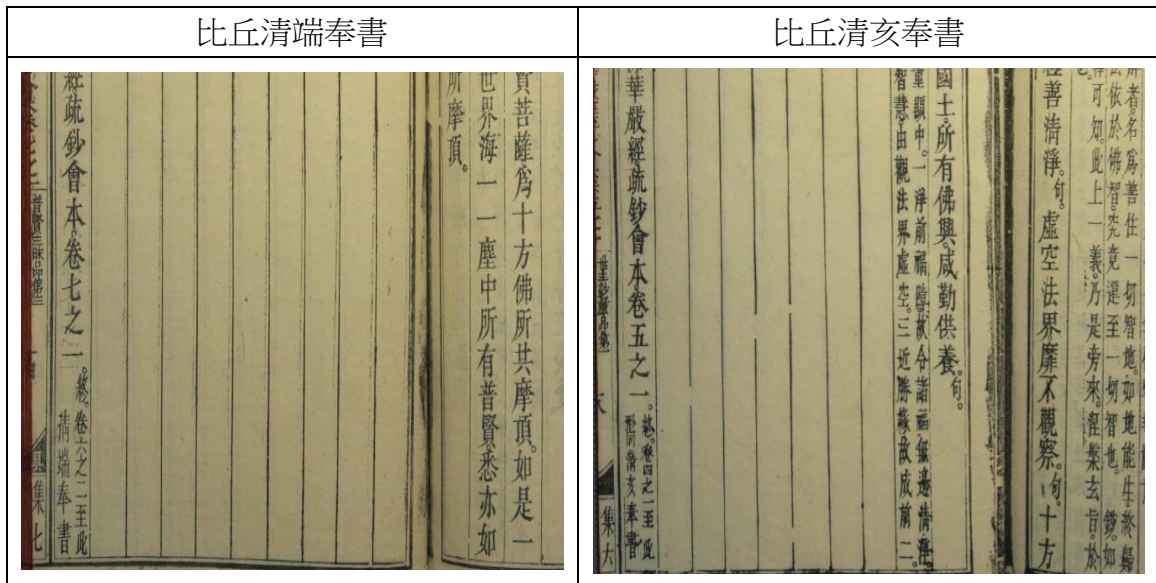 比丘清端奉書
比丘清亥奉書
賢菩薩為十方佛所共摩頂。如是一
世界海一一塵中所有普賢悉亦如
所摩頂。
經疏鈔會本卷七之一。終。卷六之二至此
清端奉書
普賢三昧品第三
集七
者。名為善住一切智地。如地能生終歸
依於佛智。究竟還至一切智也。鈔。如
可知。此上一義。乃是旁來。涅槃玄旨。於
善清淨。句。虛空法界靡不觀察。句。十方
國土。所有佛興。咸勤供養。句。
重顯中。一淨前福障。故令諸福無邊清淨。
智慧。由觀法界虛空。三近勝緣。故成前二。
華嚴經疏鈔會本卷五之一。終。卷四之一至此
清亥奉書
集六